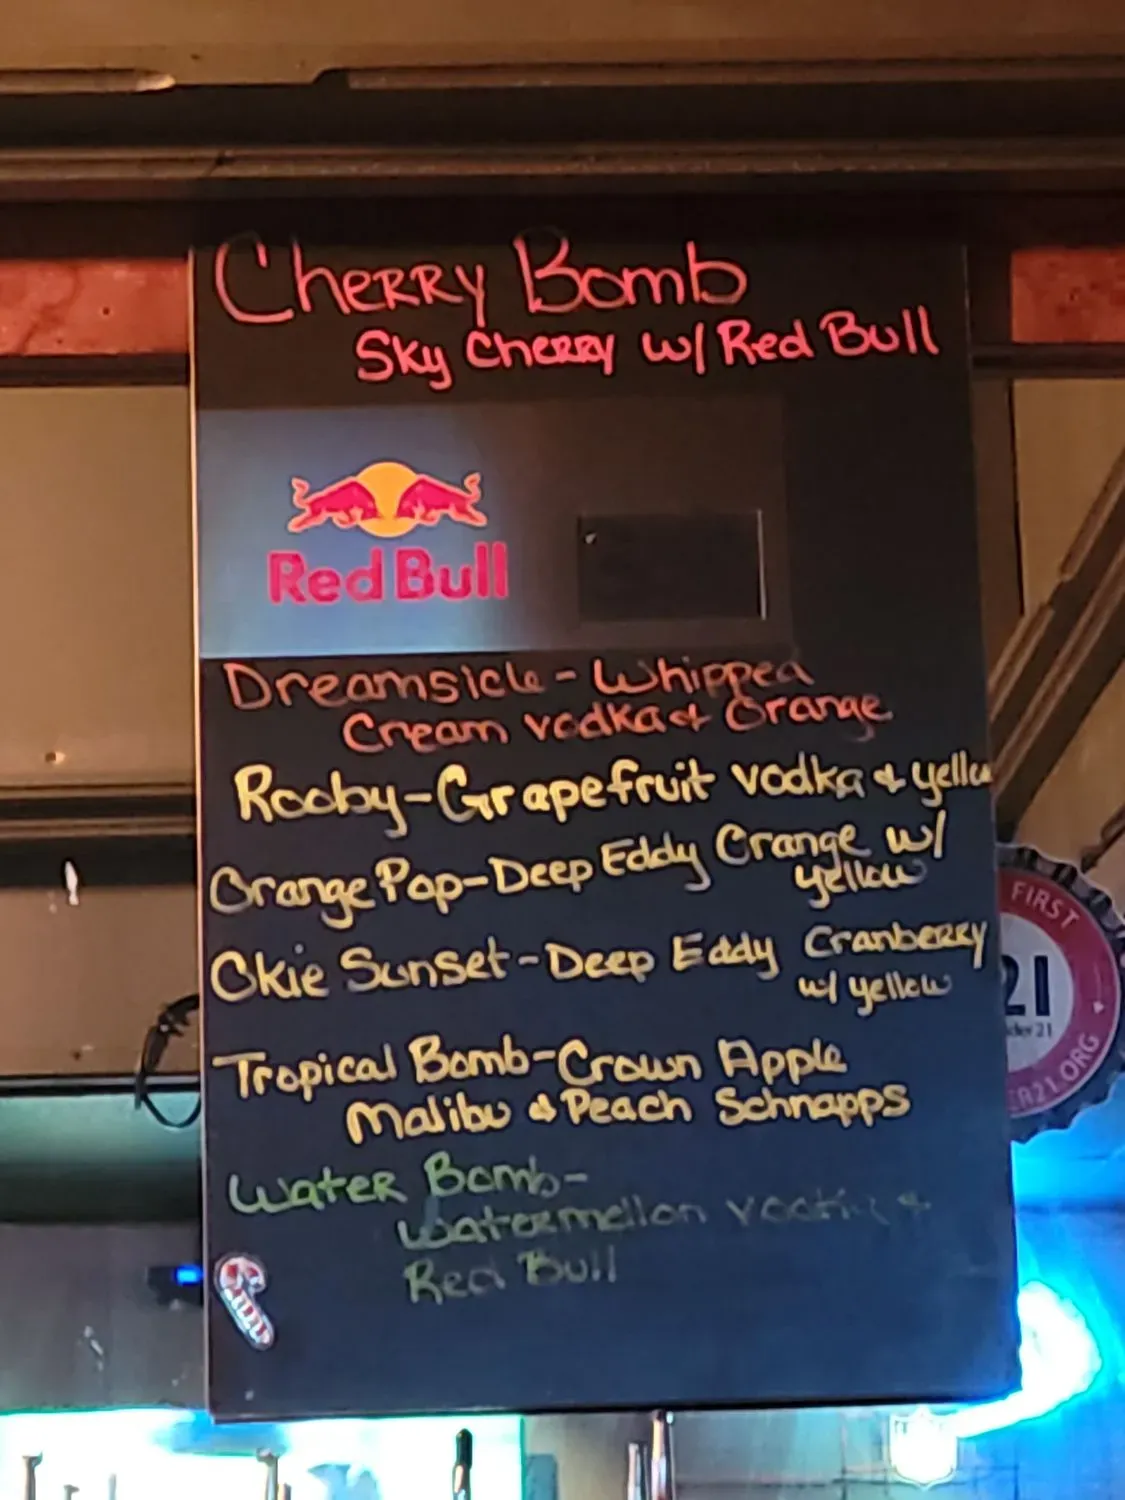 Cherry Bomb
Sky Cherry w/ Red Bull
Red Bull
Dreamsicle - Whipped
Cream vodka & Orange
Rooby-Grapefruit vodka & yellow
Orange Pop-Deep Eddy Orange w/
yellow
Okie Sunset-Deep Eddy Cranberry
w/ yellow
Tropical Bomb-Crown Apple
Malibu & Peach Schnapps
Water Bomb-
Watermellon vodka &
Red Bull
FIRST
21
der 21
ER21.ORG
NFL